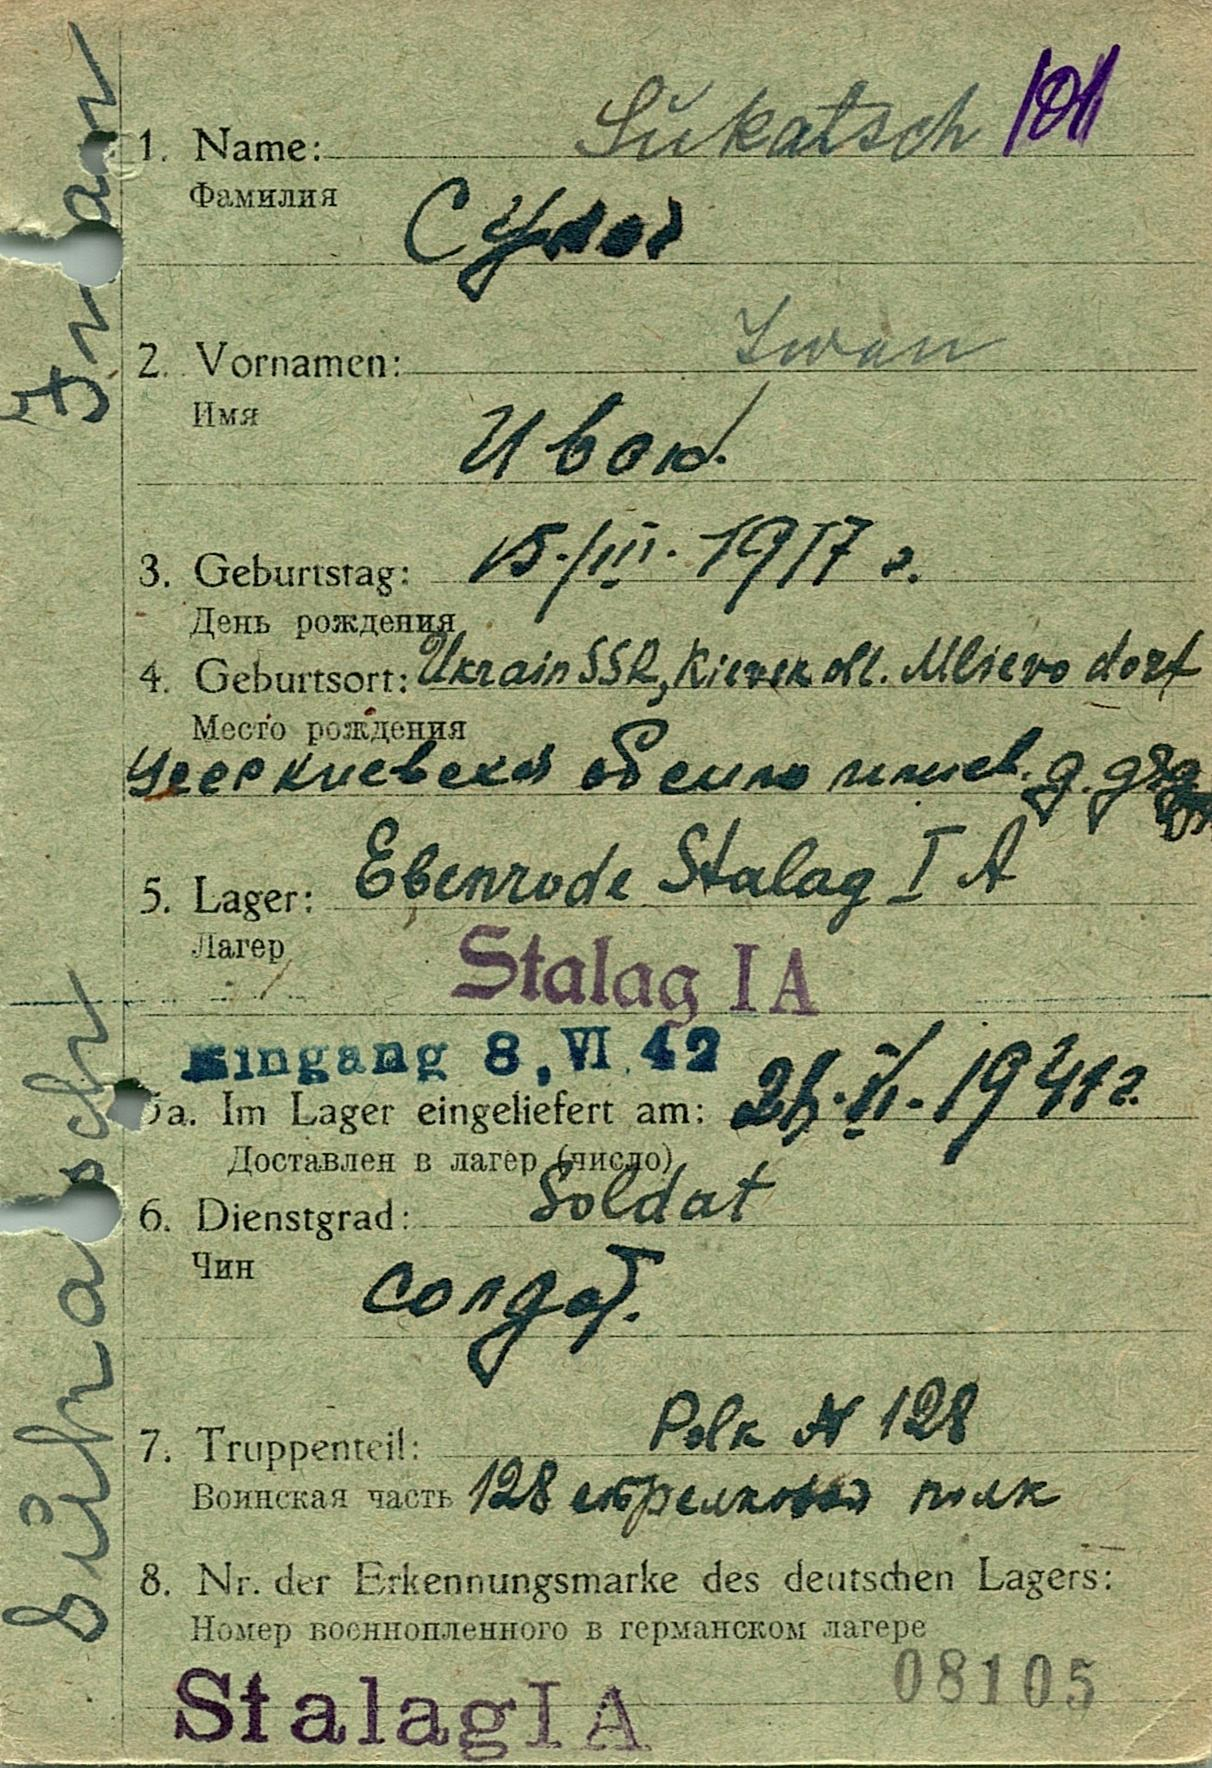 Sukatsch 101
1. Name:
Фамилия
2. Vornamen: Iwan
Имя
Иван
3. Geburtstag: 15.III.1917 г.
День рождения
4. Geburtsort: Ukrain SSR, Kievsk obl. Mlievo dorf
Место рождения
5. Lager: Ebenrode Stalag I A
Лагер
Stalag I A
Eingang 8, VI. 42
5a. Im Lager eingeliefert am: VI. 1941 г.
Доставлен в лагер (число)
6. Dienstgrad: Soldat
Чин
солдат.
7. Truppenteil: Polk N 128
Воинская часть 128 стрелковый полк
8. Nr. der Erkennungsmarke des deutschen Lagers:
Номер военнопленного в германском лагере
08105
Stalag I A
Sukatsch Iwan